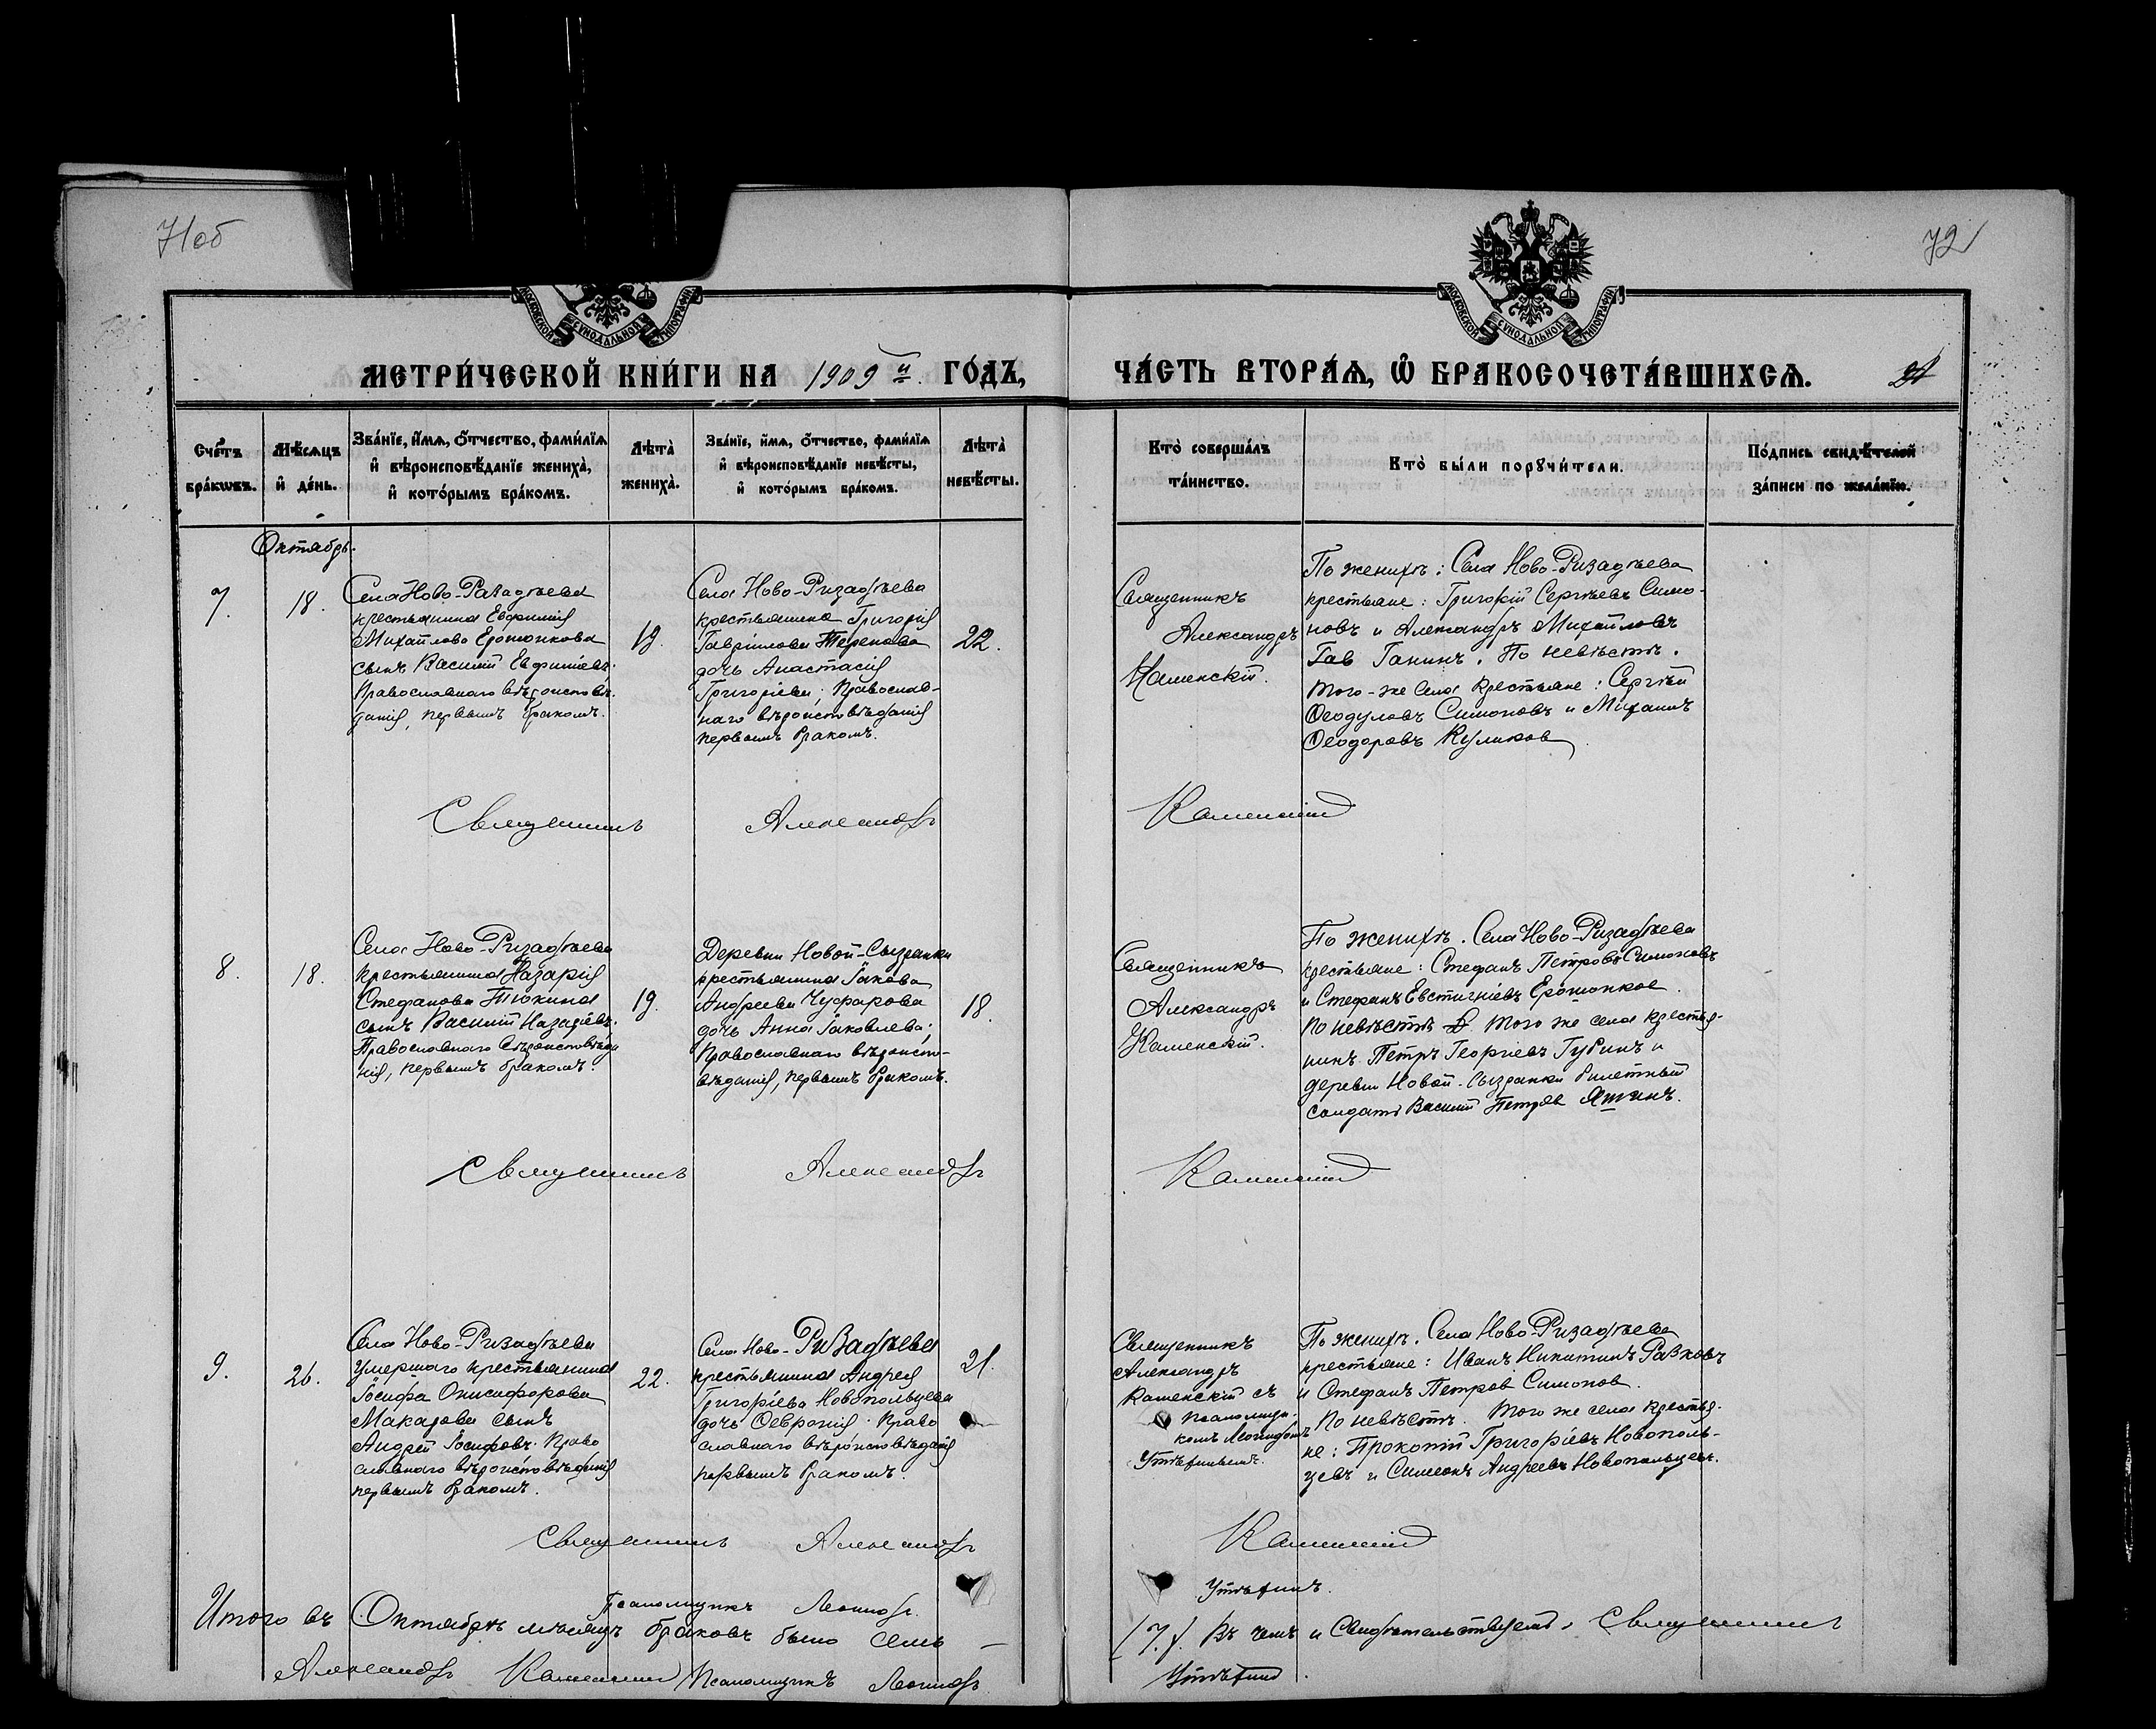 71об
72
МОСКОВСКОЙ СУНОДАЛЬНОЙ ТИПОГРАФІИ
МОСКОВСКОЙ СУНОДАЛЬНОЙ ТИПОГРАФІИ
МЕТРИ́ЧЕСКОЙ КНИ́ГИ НА 1909 й. ГО́ДЪ,
ЧА́СТЬ ВТОРА́Ѧ, Ѡ҆ БРАКОСОЧЕТА́ВШИХСѦ.
Сче́тъ бра́кѡвъ.
Мѣ́сѧцъ и҆ де́нь.
Зва́нїе, и҆́мѧ, ѻ҆́тчество, фами́лїѧ
и҆ вѣроисповѣ́данїе жениха̀,
и҆ кото́рымъ бра́комъ.
Лѣта̀ жениха̀.
Зва́нїе, и҆́мѧ, ѻ҆́тчество, фами́лїѧ
и҆ вѣроисповѣ́данїе невѣ́сты,
и҆ кото́рымъ бра́комъ.
Лѣта̀ невѣ́сты.
Кто̀ соверша́лъ та́инство.
Кто̀ бы́ли порꙋчи́тели.
По́дпись свидѣ́телей за́писи по жела́нїю.
Октябрь.
7.
18.
Села Ново-Ризадѣева
крестьянина Евфимія
Михайлова Ерошкова
сынъ Василій Евфиміевъ.
Православнаго вѣроисповѣ-
данія, первымъ бракомъ.
19.
Села Ново-Ризадѣева
крестьянина Григорія
Гаврилова
дочь Анастасія
Григоріева; Православ-
наго вѣроисповѣданія
первымъ бракомъ.
22.
Священникъ
Александръ
Каменскій.
По женихѣ: Села Ново-Ризадѣева
крестьяне: Григорій Сергѣевъ Симо-
новъ и Александръ Михайловъ
Ганинъ. По невѣстѣ.
того-же села крестьяне: Сергѣй
Ѳеодуловъ Симоновъ и Михаилъ
Ѳеодоровъ Куликов
Священникъ Александръ Каменскій
8.
18.
Села Ново-Ризадѣева
крестьянина Назарія
Стефанова Тюкина
сынъ Василій Назаріевъ.
Православнаго вѣроисповѣда
нія, первымъ бракомъ.
19.
Деревни Новой-Сызранки
крестьянина Іакова
Андреева Чуфарова
дочь Анна Іаковлева;
Православнаго вѣроиспо-
вѣданія, первымъ бракомъ.
18.
Священникъ
Александръ
Каменскій.
По женихѣ. Села Ново-Ризадѣева
крестьяне: Стефанъ Петровъ Симоновъ
и Стефанъ Евстигніевъ
По невѣстѣ того же села крестья-
нинъ Петръ Георгіевъ Губинъ и
деревни Новой-Сызранки билетный
солдатъ Василій Петров Яшинъ.
Священникъ Александръ Каменскій
9.
26.
Села Ново-Ризадѣева
умершаго крестьянина
Іосифа Онисифорова
Макарова сынъ
Андрей Іосифовъ. Право
славнаго вѣроисповѣданія
первымъ бракомъ.
22.
Села Ново-Ризадѣева
крестьянина Андрея
Григоріева Новопольцева
дочь Ѳевронія. Право
славнаго вѣроисповѣданія
первымъ бракомъ.
21.
Священникъ
Александръ
Каменскій съ
псаломщи-
комъ Леонидомъ
Утѣхинымъ.
По женихѣ. Села Ново-Ризадѣева
крестьяне: Иванъ Никитинъ Разковъ
и Стефанъ Петров Симонов.
По невѣстѣ. Того же села крестья-
не: Прокопій Григоріевъ Новополь-
цевъ и Симеонъ Андреевъ Новопольцевъ.
Священникъ Александръ Каменскій
Псаломщикъ Леонидъ Утѣхинъ.
Итого въ Октябрѣ мѣсяцѣ браковъ было семь — (7.). Въ чемъ и свидѣтельствуемъ, Священникъ
Александръ Каменскій Псаломщикъ Леонидъ Утѣхинъ.